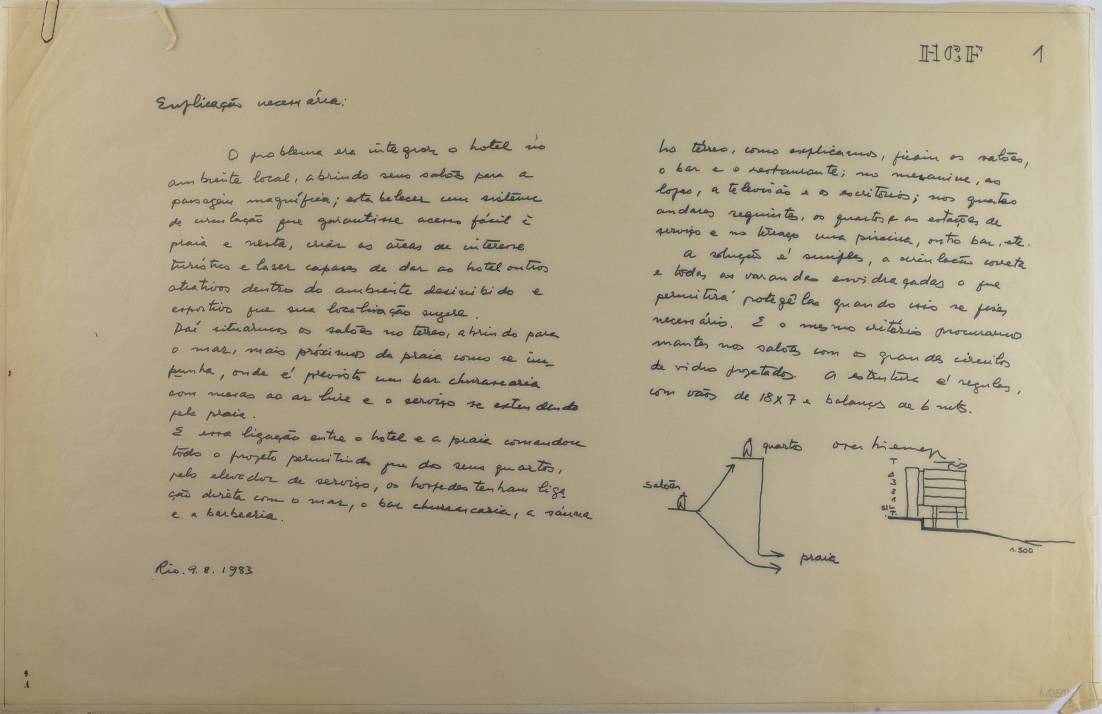 HCF 1
Explicação necessária:
O problema era integrar o hotel no
ambiente local, abrindo seus salões para a
paisagem magnífica; estabelecer um sistema
de circulação que garantisse acesso fácil à
praia e nesta, criar as áreas de interesse
turístico e laser capazes de dar ao hotel outros
atrativos dentro do ambiente desinibido e
esportivo que sua localização sugere.
Daí situarmos os salões no térreo, abrindo para
o mar, mais próximos da praia como se im-
punha, onde é previsto um bar churrascaria
com mesas ao ar livre e o serviço se extendendo
pela praia.
E essa ligação entre o hotel e a praia comandou
todo o projeto permitindo que dos seus quartos,
pelo elevador de serviço, os hospedes tenham liga
ção direta com o mar, o bar churrascaria, a sauna
e a barbearia.
Rio. 9.8.1983
No térreo, como explicamos, ficam os salões,
o bar e o restaurante; no mezanine, as
lojas, a televisão e os escritórios; nos quatro
andares seguintes, os quartos e as estações de
serviço e no terraço uma piscina, outro bar, etc.
A solução é simples, a circulação correta
e todas as varandas envidraçadas o que
permitirá protegê-las quando isso se fizer
necessário. E o mesmo critério procuramos
manter nos salões com os grandes círculos
de vidro projetados. A estrutura é regular,
com vãos de 18x7 e balanços de 6 mts.
quartos
oscar niemeyer
salões
praia
T
4
3
2
1
1.500